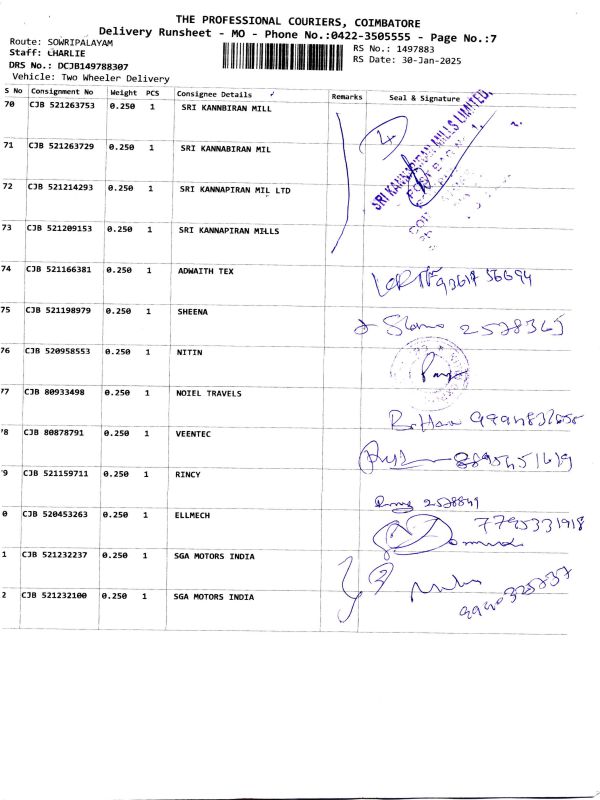 THE PROFESSIONAL COURIERS, COIMBATORE
Delivery Runsheet - MO - Phone No.:0422-3505555 - Page No.:7
Route: SOWRIPALAYAM
Staff: CHARLIE RS No.: 1497883
DRS No.: DCJB149788307 RS Date: 30-Jan-2025
Vehicle: Two Wheeler Delivery
S No Consignment No Weight PCS Consignee Details Remarks Seal & Signature
70 CJB 521263753 0.250 1 SRI KANNBIRAN MILL 4
SRI KANNABIRAN MILLS LIMITED,
71 CJB 521263729 0.250 1 SRI KANNABIRAN MIL
72 CJB 521214293 0.250 1 SRI KANNAPIRAN MIL LTD
73 CJB 521209153 0.250 1 SRI KANNAPIRAN MILLS
74 CJB 521166381 0.250 1 ADWAITH TEX
75 CJB 521198979 0.250 1 SHEENA 2578365
76 CJB 520958553 0.250 1 NITIN
77 CJB 80933498 0.250 1 NOIEL TRAVELS
78 CJB 80878791 1 0.250 VEENTEC
9 CJB 521159711 0.250 1 RINCY
0 CJB 520453263 0.250 1 ELLMECH 7795331918
1 CJB 521232237 0.250 1 SGA MOTORS INDIA 2
2 CJB 521232100 0.250 1 SGA MOTORS INDIA